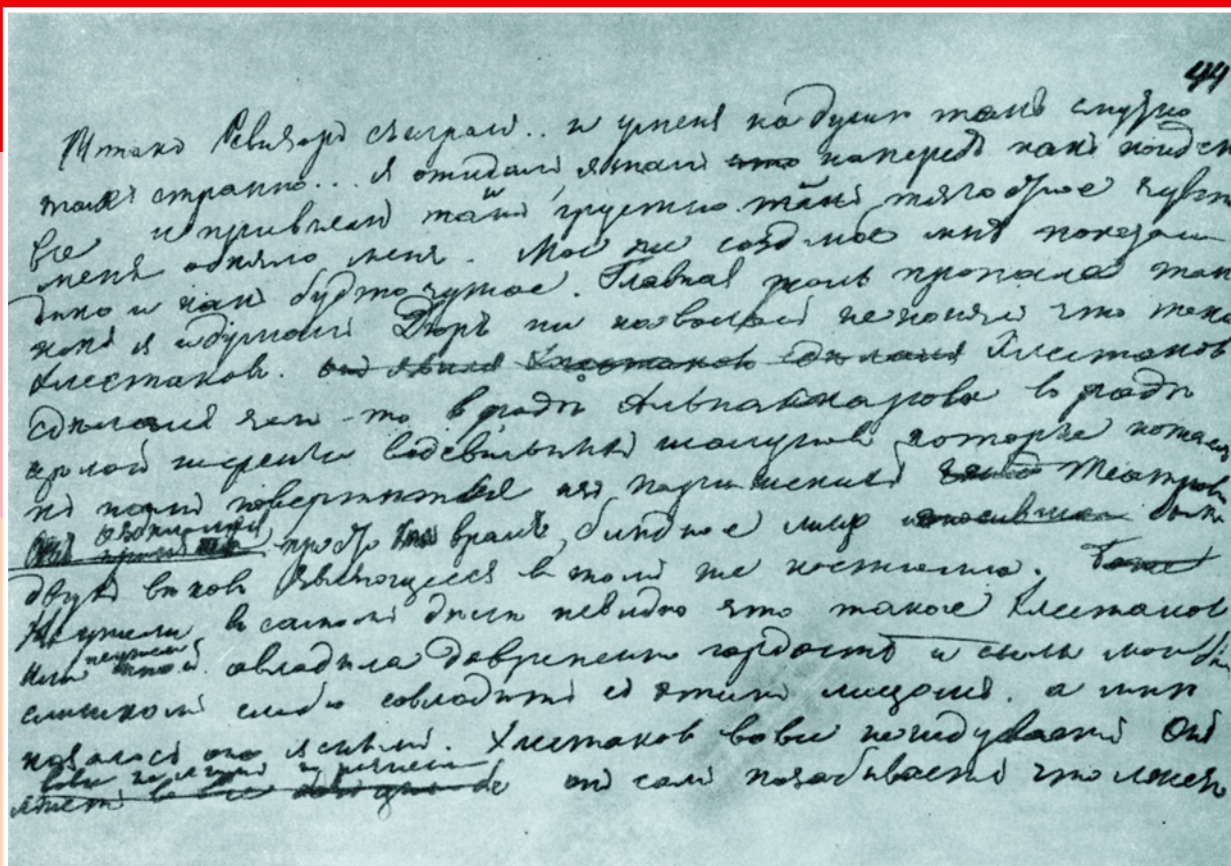 44
Итакъ Ревизоръ сыгранъ.. и у меня на душе такъ смутно
такъ странно... Я ожидалъ я зналъ напередъ какъ пойдетъ
все и при всемъ томъ грустно
меня обняло меня. Мое же созданіе мнѣ показал
дико и какъ будто чужое. Главная роль пропала так
какъ я и думалъ Дюръ ни на волосъ не понялъ что тако
Хлестаковъ. Хлестаковъ
сдѣлался чем-то в родѣ Альнаскарова в родѣ
целой шеренги водевильныхъ шалуновъ которые
къ намъ повертѣться изъ парижскихъ Театров
просто вралъ, блѣдное лицо
двухъ вѣков являющееся в томъ же костюмѣ.
Неужели в самомъ дѣлѣ невидно что такое Хлестаков
Или овладѣла гордость и силы мои
слишкомъ слабы совладать съ этимъ лицомъ. а мнѣ
казалось оно яснымъ. Хлестаков вовсе ненадуваетъ Онъ
вовсе не лгунъ по ремеслу
онъ самъ позабываетъ что лжетъ